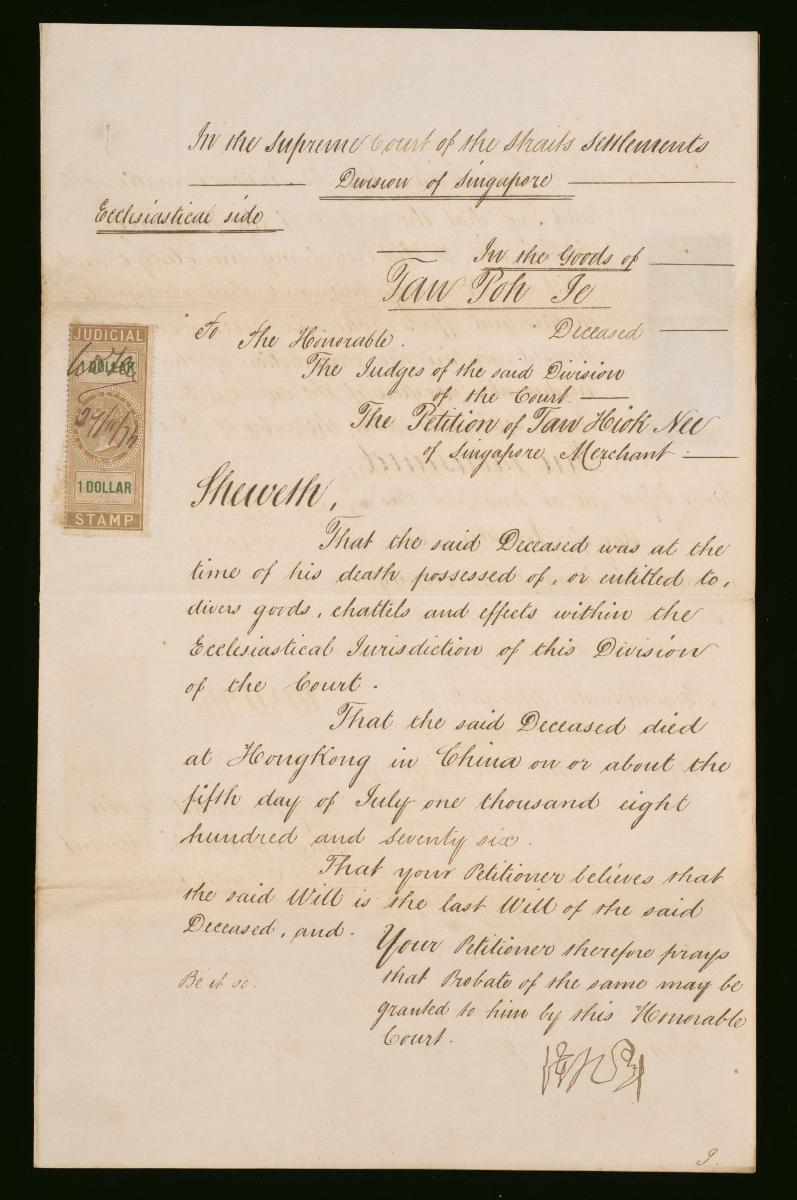 In the Supreme Court of the Straits Settlements
Division of Singapore
Ecclesiastical side
In the Goods of
Tan Poh Je
Deceased
To The Honorable.
The Judges of the said Division
of the Court.
The Petition of Tan Hiok Nee
of Singapore Merchant
JUDICIAL
1 DOLLAR
1 DOLLAR
STAMP
Sheweth,
That the said Deceased was at the
time of his death possessed of, or entitled to,
divers goods, chattels and effects within the
Ecclesiastical Jurisdiction of this Division
of the Court.
That the said Deceased died
at HongKong in China on or about the
fifth day of July one thousand eight
hundred and seventy six.
That your Petitioner believes that
the said Will is the last Will of the said
Deceased, and.
Your Petitioner therefore prays
that Probate of the same may be
granted to him by this Honorable
Court.
Be it so.